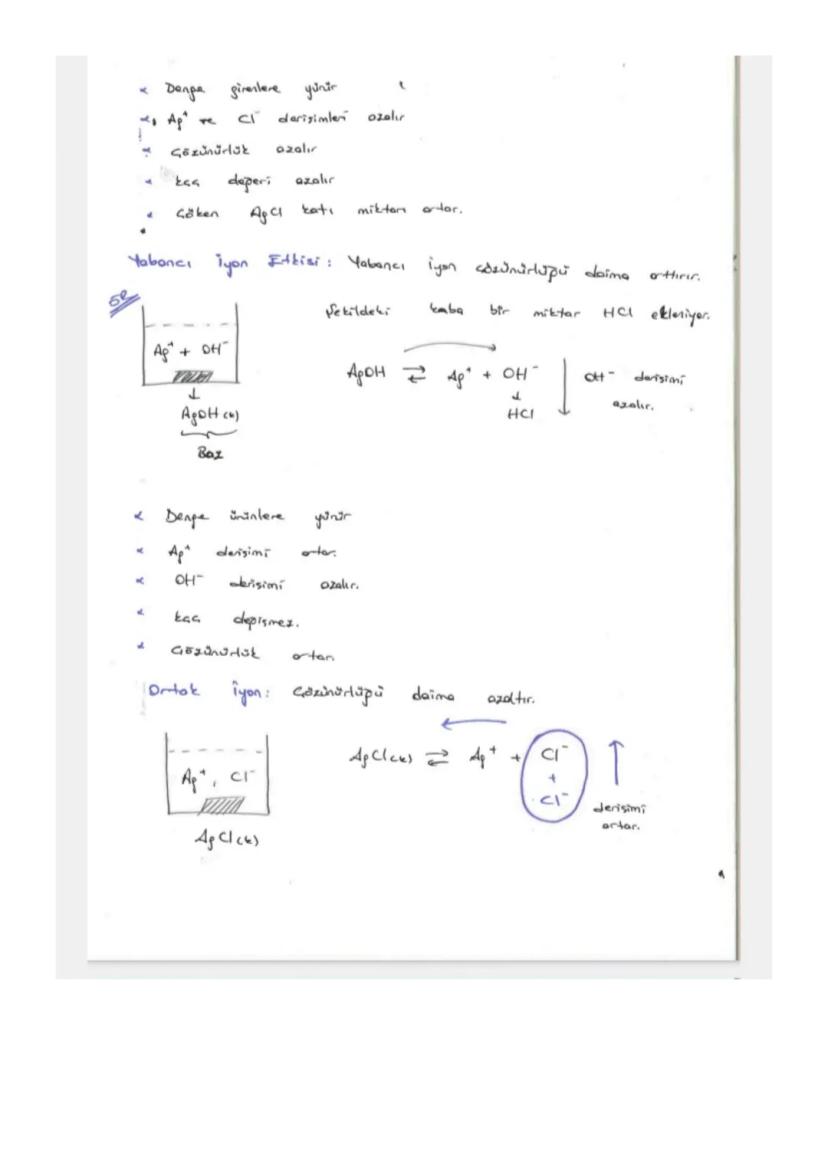 Denge girenlere yürür
Ag⁺ ve Cl⁻ derişimleri azalır
Çözünürlük azalır
kçç değeri azalır
Çöken AgCl katı miktarı artar.
Yabancı İyon Etkisi: Yabancı iyon çözünürlüğü daima arttırır.
ÖR
Şekildeki kaba bir miktar HCl ekleniyor.
Ag⁺ + OH⁻
AgOH ⇌ Ag⁺ + OH⁻
OH⁻ derişimi azalır.
↓
HCl
↓
AgOH(k)
Baz
Denge ürünlere yürür
Ag⁺ derişimi artar.
OH⁻ derişimi azalır.
kçç değişmez.
Çözünürlük artar.
Ortak İyon: Çözünürlüğü daima azaltır.
Ag⁺, Cl⁻
AgCl(k) ⇌ Ag⁺ + Cl⁻
+
Cl⁻
derişimi
artar.
AgCl(k)